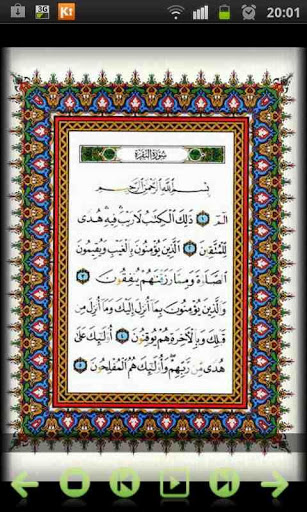 3G
20:01
سورة البقرة
بسم الله الرحمن الرحيم
الٓمٓ ۝١ ذَٰلِكَ ٱلْكِتَٰبُ لَا رَيْبَ فِيهِ هُدًى
لِّلْمُتَّقِينَ ۝٢ ٱلَّذِينَ يُؤْمِنُونَ بِٱلْغَيْبِ وَيُقِيمُونَ
ٱلصَّلَوٰةَ وَمِمَّا رَزَقْنَٰهُمْ يُنفِقُونَ ۝٣
وَٱلَّذِينَ يُؤْمِنُونَ بِمَآ أُنزِلَ إِلَيْكَ وَمَآ أُنزِلَ مِن
قَبْلِكَ وَبِٱلْأٓخِرَةِ هُمْ يُوقِنُونَ ۝٤ أُو۟لَٰٓئِكَ عَلَىٰ
هُدًى مِّن رَّبِّهِمْ وَأُو۟لَٰٓئِكَ هُمُ ٱلْمُفْلِحُونَ ۝٥